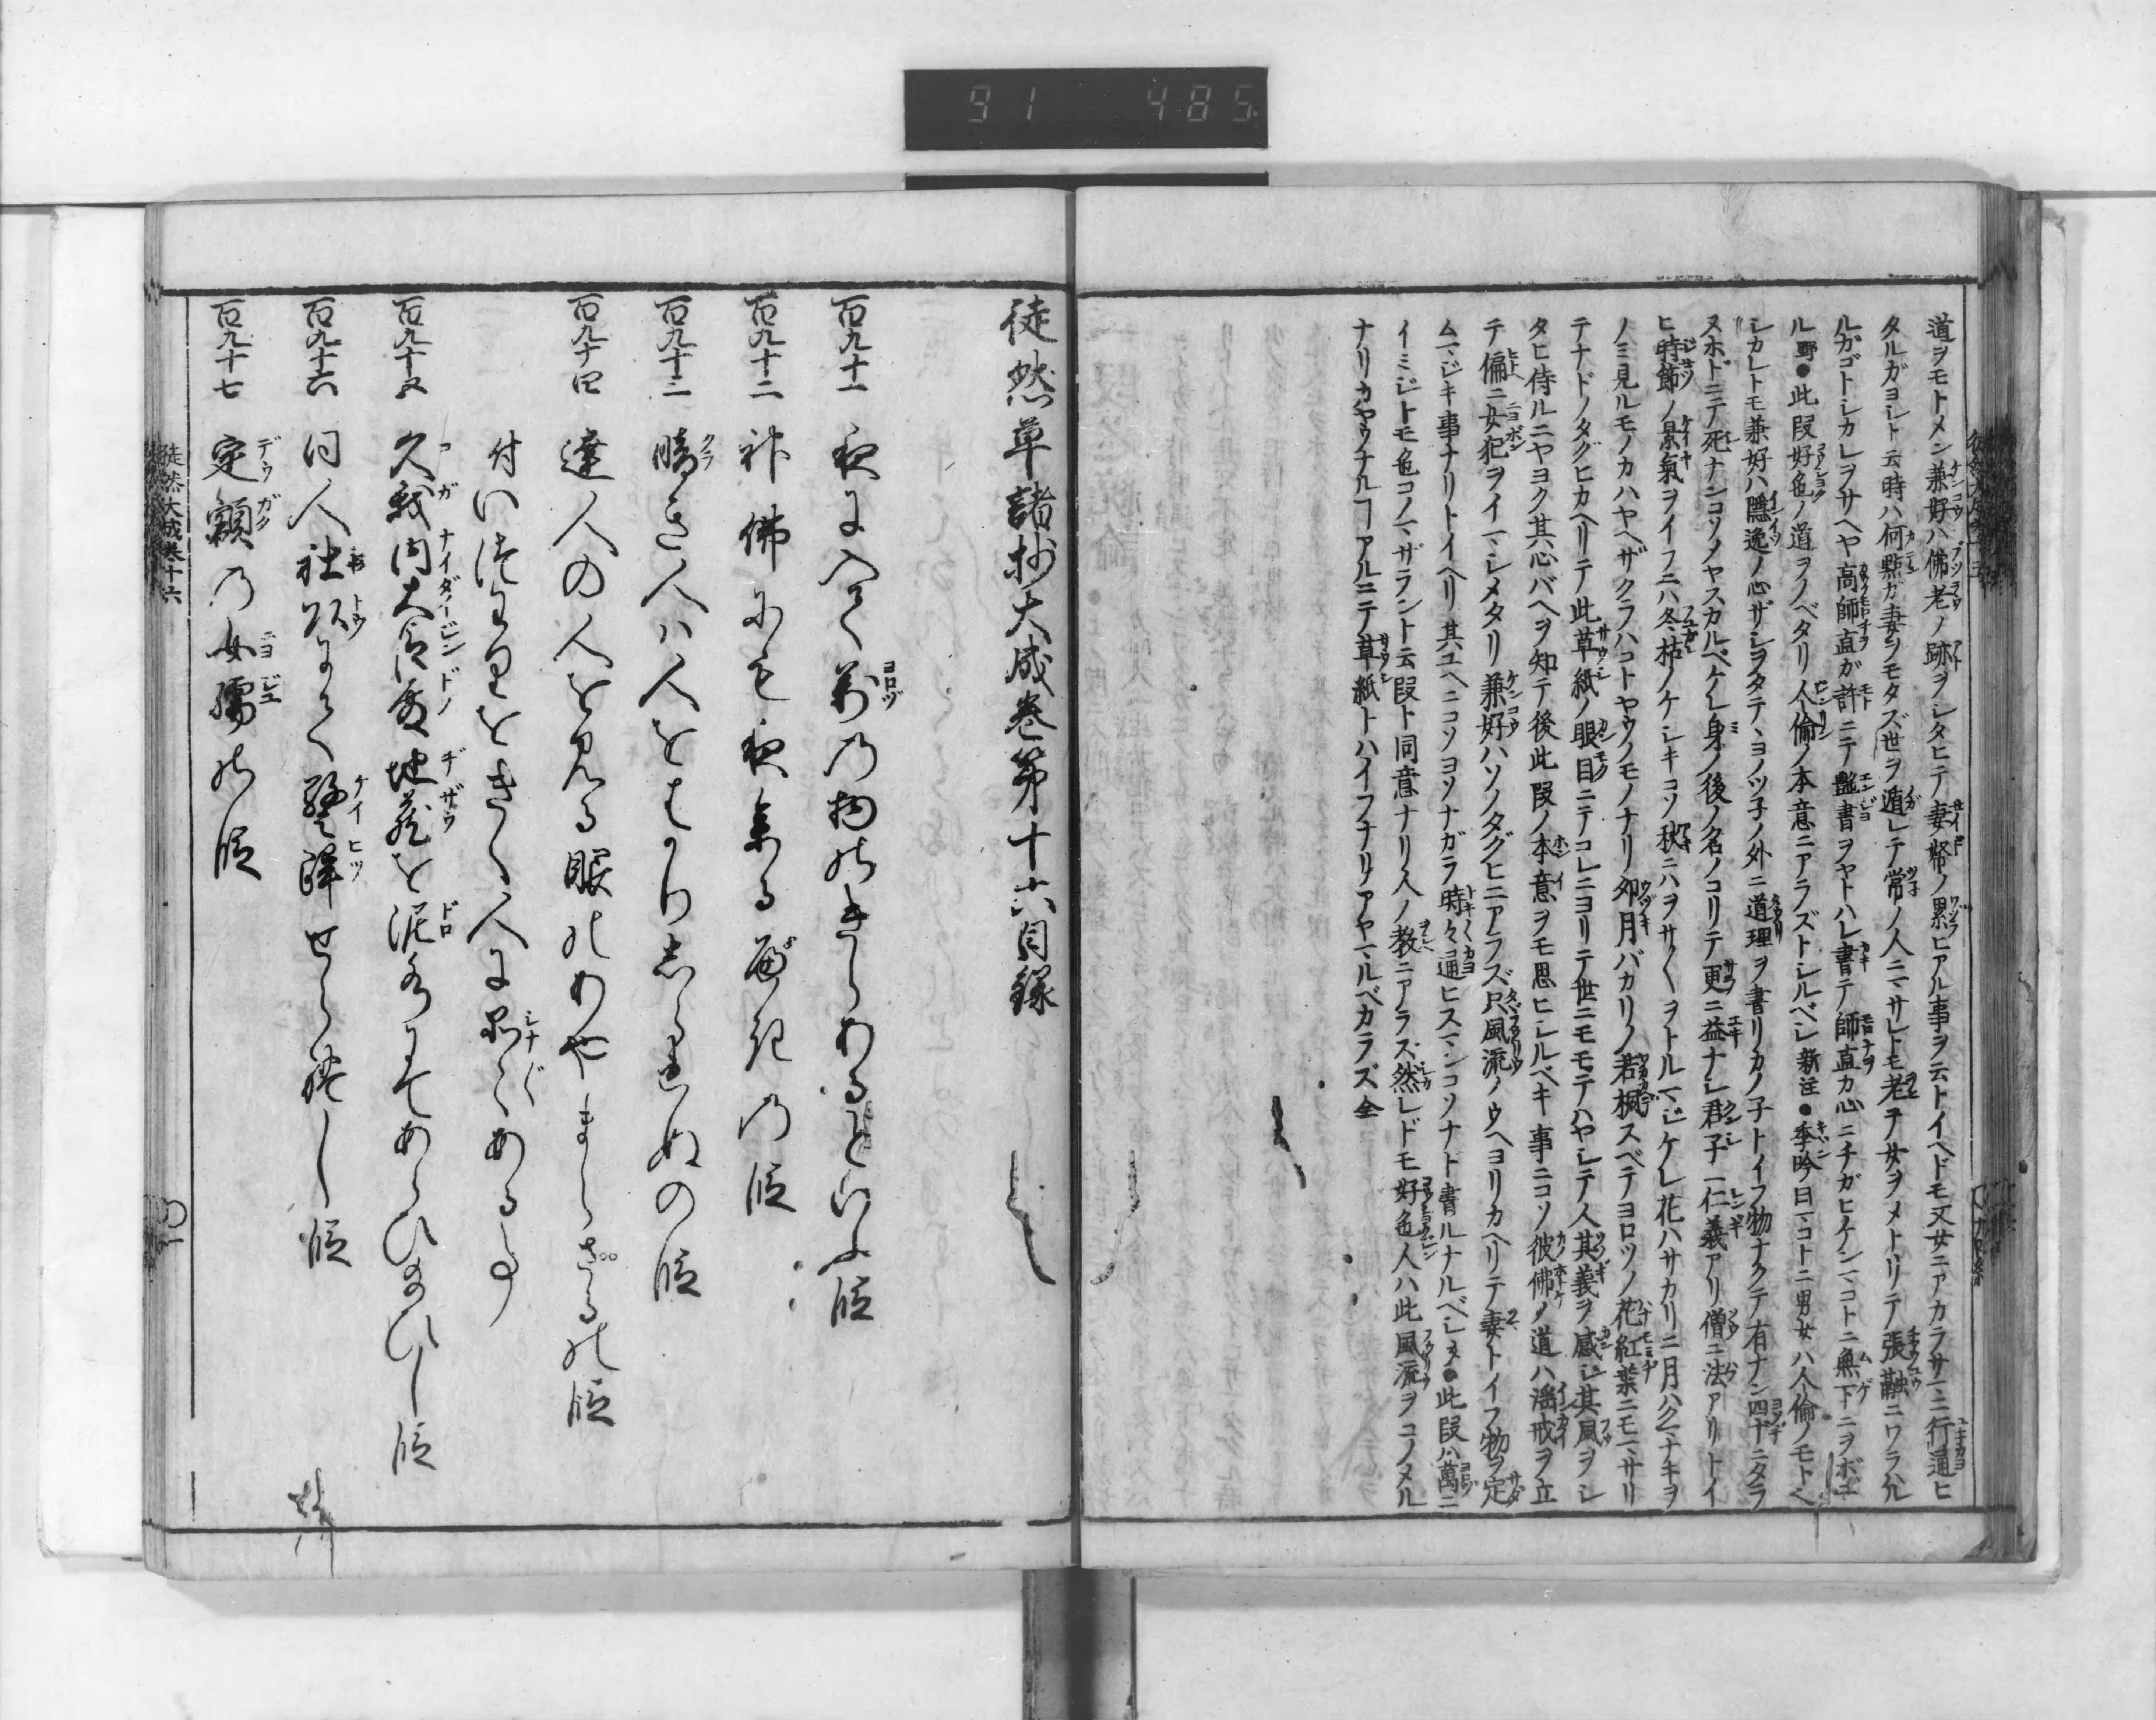 91 485
道ヲモトメン兼好ハ佛老ノ跡ヲシタヒテ妻帑ノ累ヒアル事ヲ云トイヘドモ又女ニアカラサマニ行通ヒ
タルガヨシト云時ハ何點カ妻ヲモタズ世ヲ遁レテ常ノ人ニマサレトモ老テ女ヲメトリテ張融ニワラハル
ルガゴトシカレヲサヘヤ高師直ガ許ニテ艶書ヲヤトハレ書テ師直カ心ニチガヒケンマコトニ無下ニヲボユ
ル野●此段好色ノ道ヲノベタリ人倫ノ本意ニアラズトシルベシ新注●季吟曰マコトニ男女ハ人倫ノモト
シカレトモ兼好ハ隱逸ノ心ザシヲタテヽヨノツ子ノ外ニ道理ヲ書リカノ子トイフ物ナクテ有ナン四十ニタラ
ヌホドニテ死ナンコソメヤスカルベケレ身ノ後ノ名ノコリテ更ニ益ナシ君子ニ仁義アリ僧ニ法アリトイ
ヒ時節ノ景氣ヲイフニハ冬枯ノケシキコソ秋ニハヲサ〱ヲトルマジケレ花ハサカリニ月ハクマナキヲ
ノミ見ルモノカハヤヘザクラハコトヤウノモノナリ卯月バカリノ若楓スベテヨロツノ花紅葉ニモマサリ
テナドノタグヒカヘリテ此草紙ノ眼目ニテコレニヨリテ世ニモモテハヤシテ人其義ヲ感シ其風ヲシ
タヒ侍ルニヤヨク其心バヘヲ知テ後此段ノ本意ヲモ思ヒシルベキ事ニコソ彼佛ノ道ハ婬戒ヲ立
テ偏ニ女犯ヲイマシメタリ兼好ハソノタグヒニアラズ只風流ノウヘヨリカヘリテ妻トイフ物ヲ定
ムマジキ事ナリトイヘリ其ユヘニコソヨソナガラ時々通ヒスマンコソナト書ルナルベシ●此段ハ萬ニ
イミジトモ色コノマザラント云段ト同意ナリ人ノ教ニアラズ然レドモ好色人ハ此風流ヲコノメル
ナリカヤウナルヿアルニテ草紙トハイフナリアヤマルベカラズ全
徒然草諸抄大成卷第十六目録
百九十一 夜に入て萬の物のきらめるといふ段
百九十二 神佛にも夜参る
百九十三 暗き人ハ人をはかりしられぬの段
百九十四 達人の人を見る眼のあやまらざるの段
付いつはりをきく人に品〱ある事
百九十五 久我内大臣殿地蔵を泥水にてあらひ給ひし段
百九十六 同人社頭にて警蹕せられし段
百九十七 定額の女孺の段
徒然大成卷十六